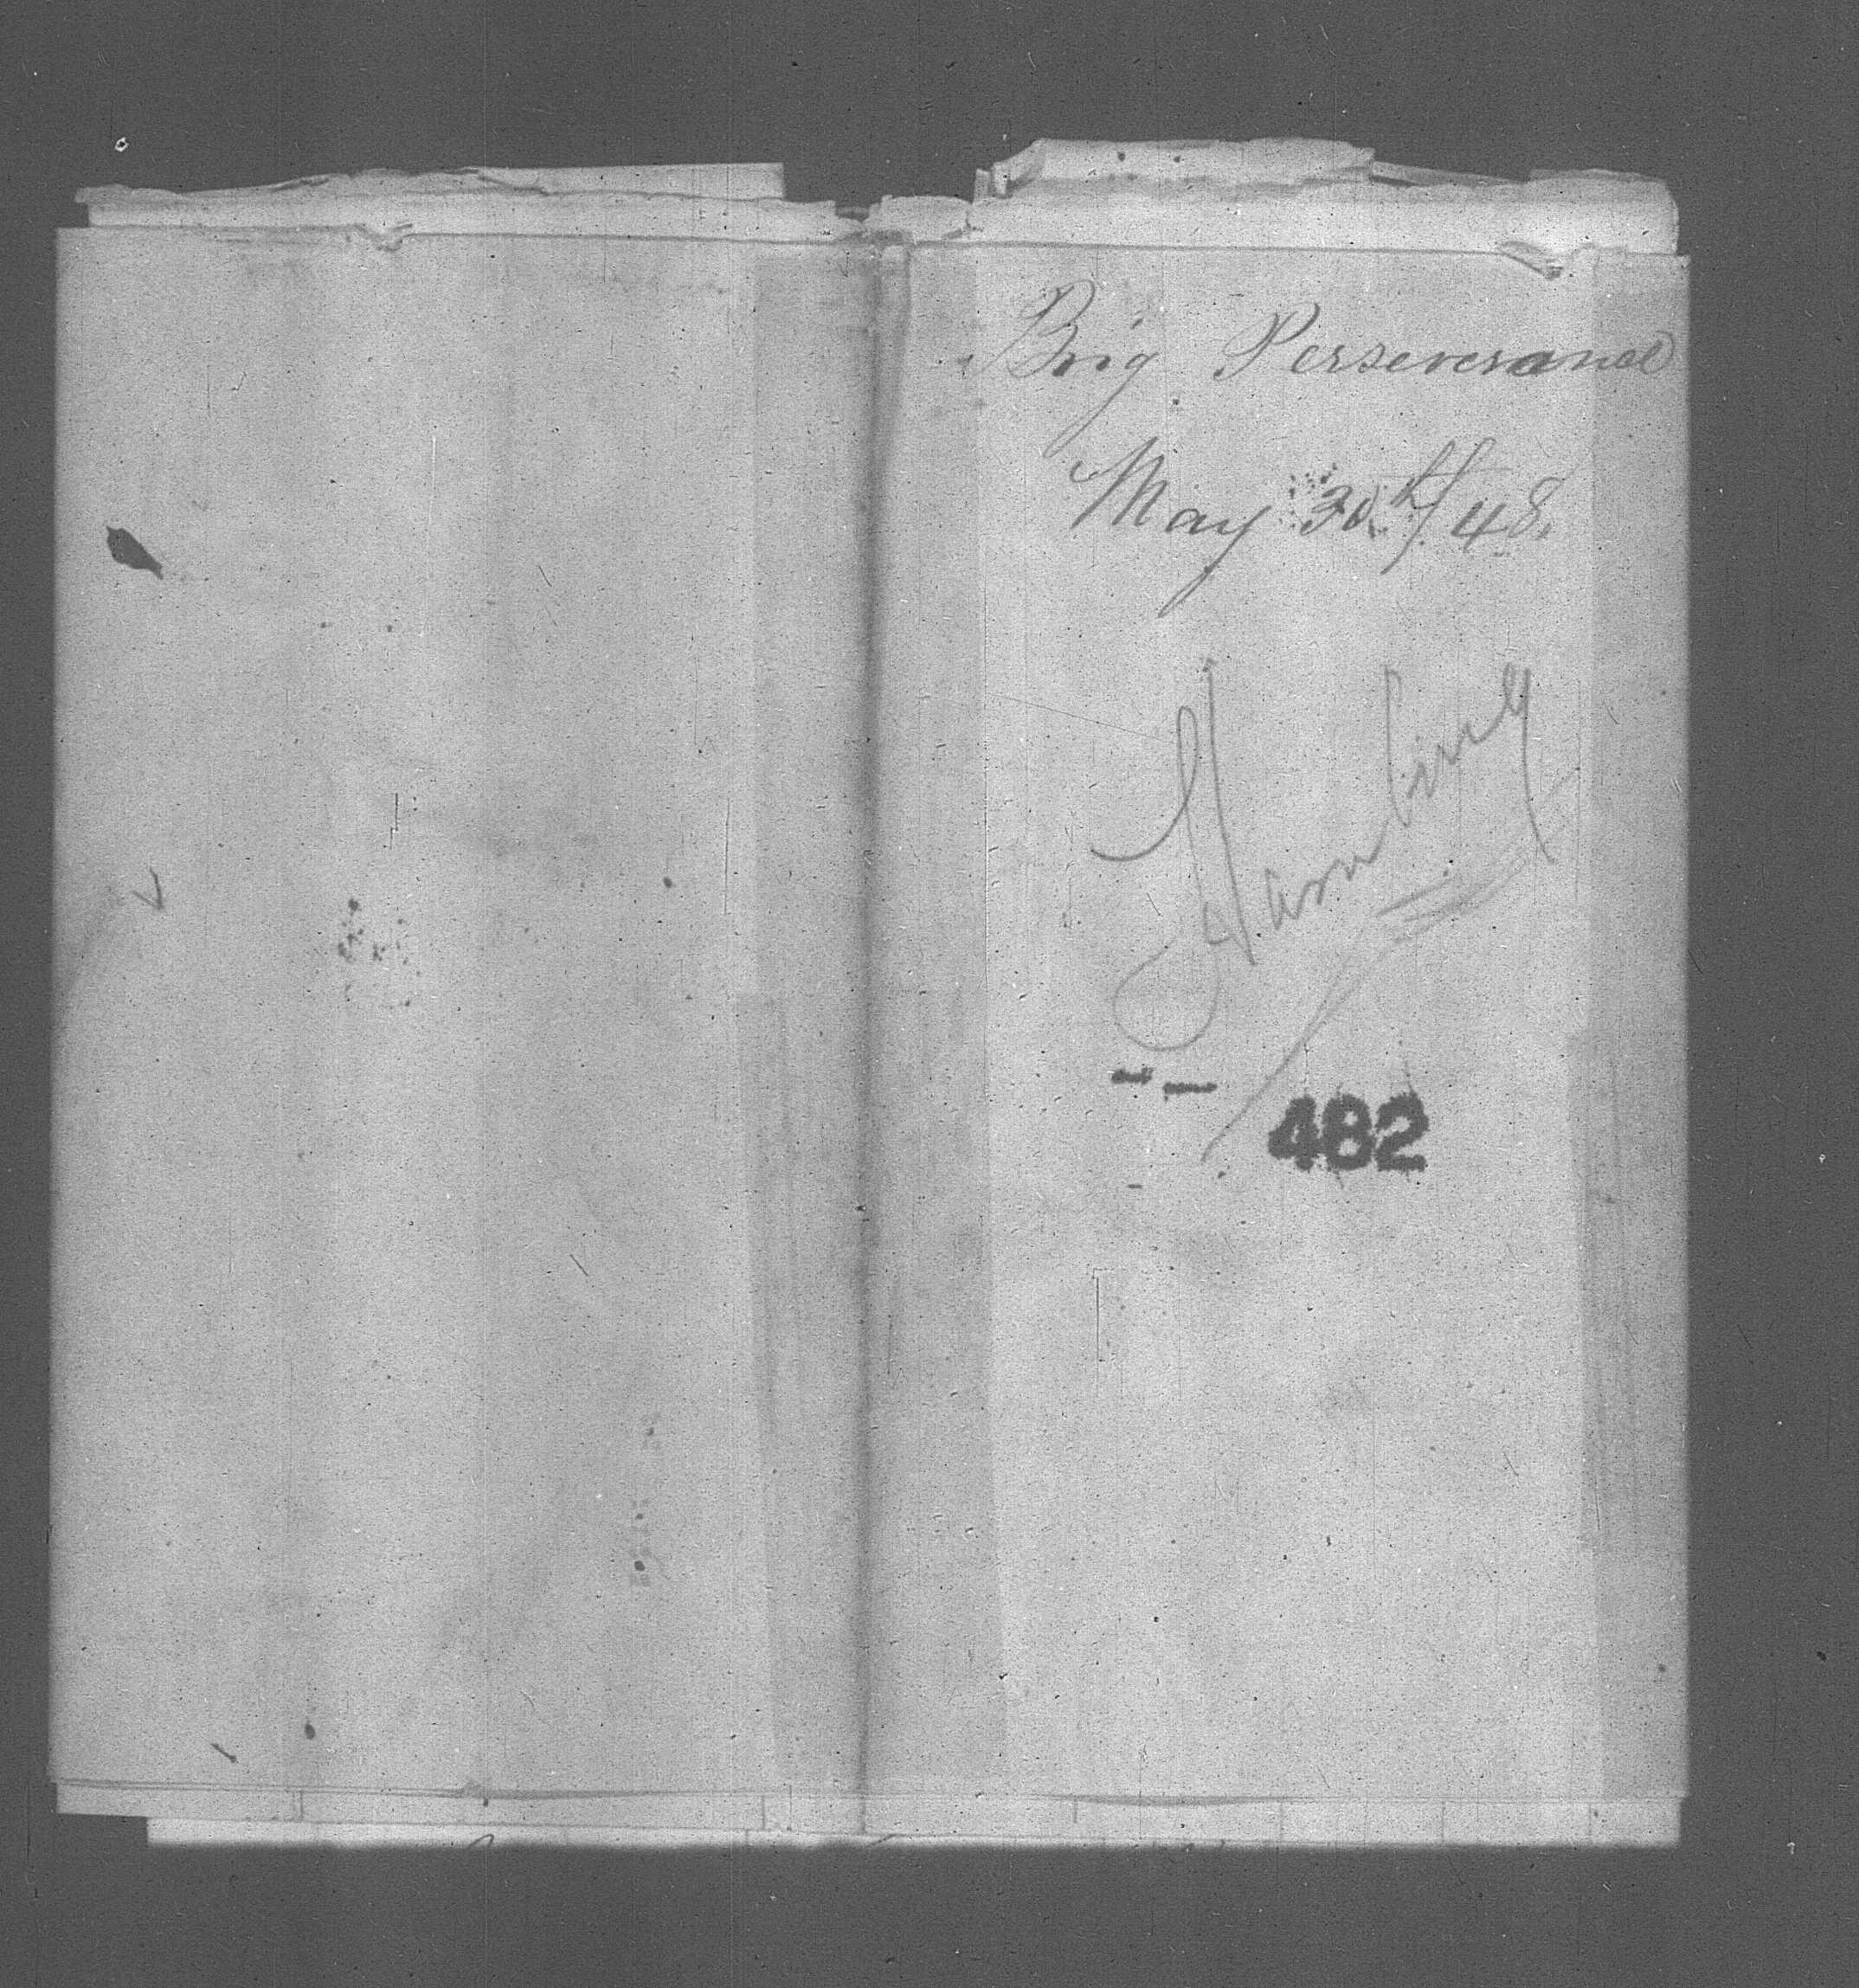 Brig Perseverance
May 30th/48.
Hamburg
482